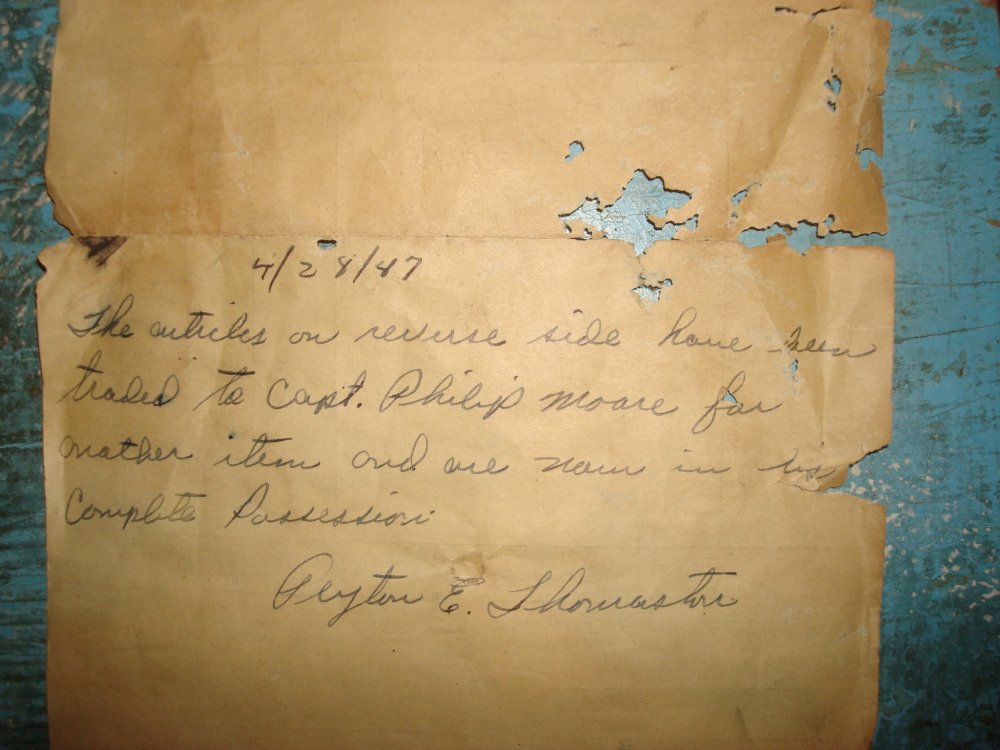 4/28/47
The articles on reverse side have been
traded to Capt. Philip Moore for
another item and are now in his
Complete Possession
Peyton E. Thomaston